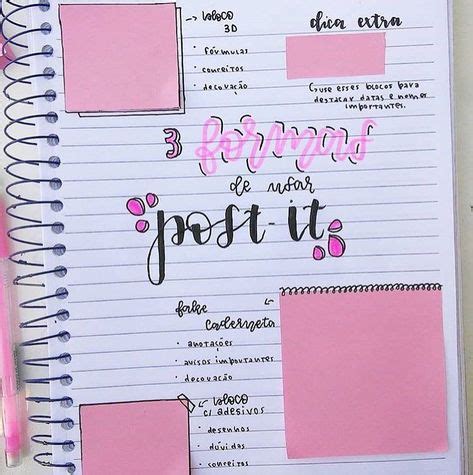 bloco
3D
• fórmulas
• conceitos
• decoração
dica extra
use esses blocos para
destacar datas e nomes
importantes.
3 formas
de usar
post-it
fake
caderneta
• anotações
• avisos importantes
• decoração
bloco
c/ adesivos
• desenhos
• dúvidas
• conceitos